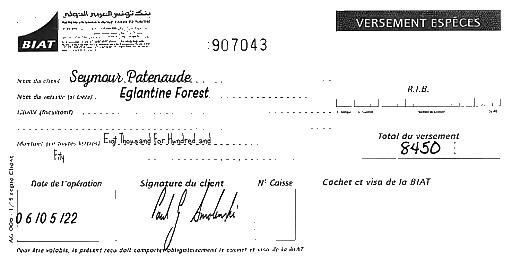 بنك تونس العربي الدولي
BIAT
907043
VERSEMENT ESPÈCES
Nom du client Seymour Patenaude
Nom du verseur (si tiers) Eglantine Forest
R.I.B.
Libellé (facultatif)
Montant (en toutes lettres) Eigt Thousand For Hundred and
Fity
Total du versement
8450
Date de l'opération Signature du client N° Caisse Cachet et visa de la BIAT
06/05/22
Pour être valable, le présent reçu doit comporter obligatoirement le cachet et visa de la BIAT